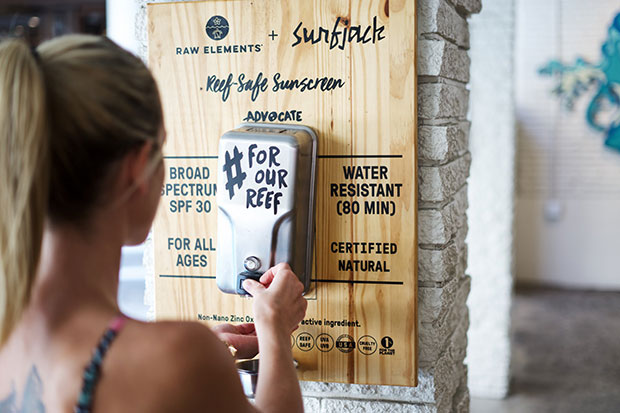 RAW ELEMENTS + Surfjack
Reef-Safe Sunscreen
ADVOCATE
#FOR
OUR
REEF
BROAD
SPECTRUM
SPF 30
FOR ALL
AGES
WATER
RESISTANT
(80 MIN)
CERTIFIED
NATURAL
Non-Nano Zinc active ingredient.
REEF SAFE
UVA UVB
USA
CRUELTY FREE
1% FOR THE PLANET